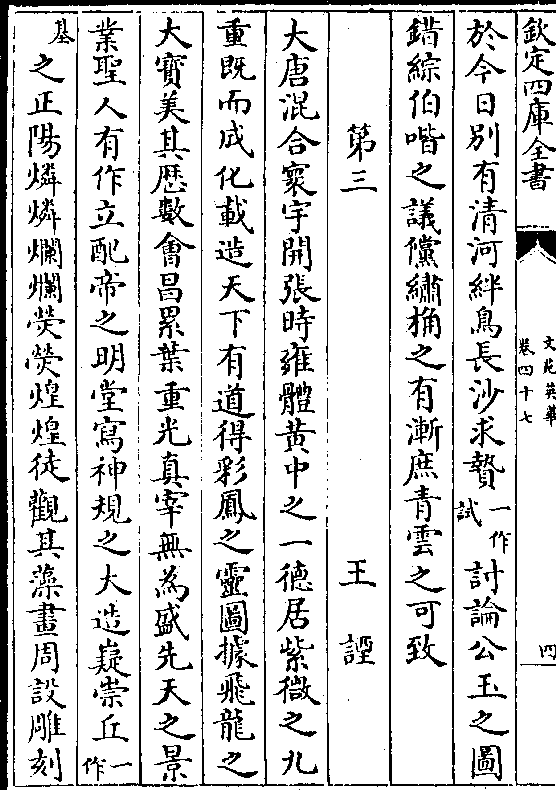 欽定四庫全書
文苑英華
卷四十七
四
於今日別有清河絆鳥長沙求贄一作試討論公玉之圖
錯綜伯喈之議儻繡桷之有漸庶青雲之可致
第三 王諲
大唐混合寰宇開張時雍體黄中之一徳居紫微之九
重既而成化載造天下有道得彩鳳之靈圖據飛龍之
大寶美其歴數㑹昌累葉重光真宰無為盛先天之景
業聖人有作立配帝之明堂寫神規之大造嶷崇丘一作
基之正陽燐燐爛爛熒熒煌煌徒觀其藻畫周設雕刻